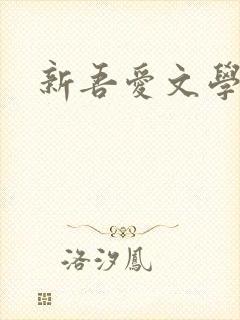 新吾愛文學
洛汐鳳